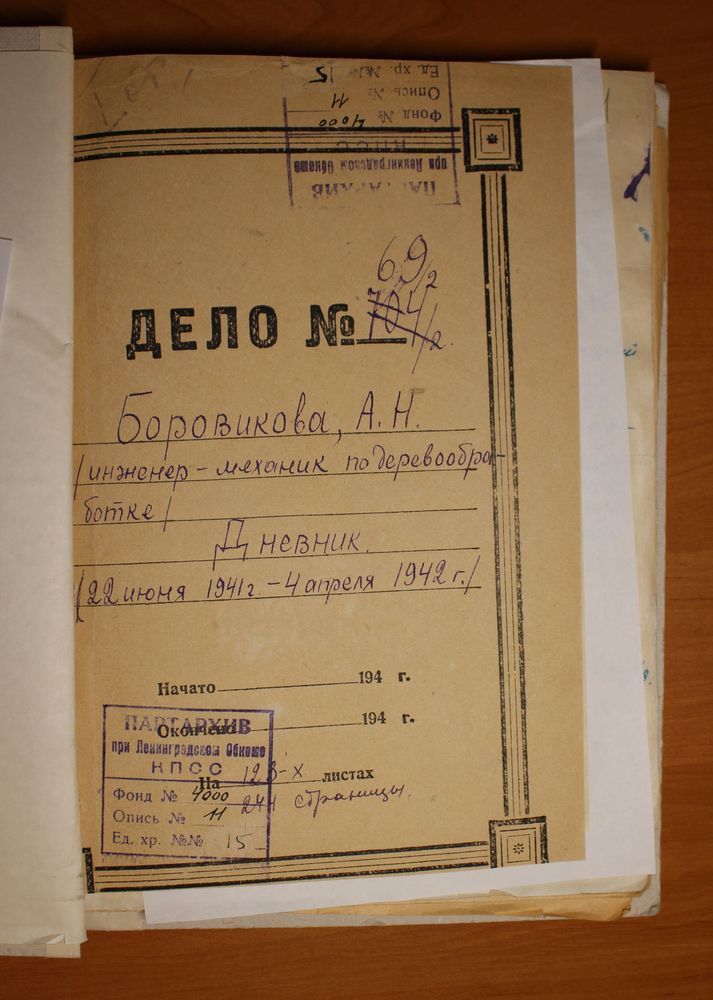 Ед. хр. №№ 15
Опись № 11
Фонд № 4000
КПСС
при Ленинградском Обкоме
ПАРТАРХИВ
69/2
ДЕЛО № 704/2.
Боровикова, А. Н.
/инженер-механик по деревообра-
ботке/
Дневник.
/22 июня 1941 г. - 4 апреля 1942 г./
Начато 194 г.
Окончено 194 г.
На 123-х листах
244 страницы.
ПАРТАРХИВ
при Ленинградском Обкоме
КПСС
Фонд № 4000
Опись № 11
Ед. хр. №№ 15